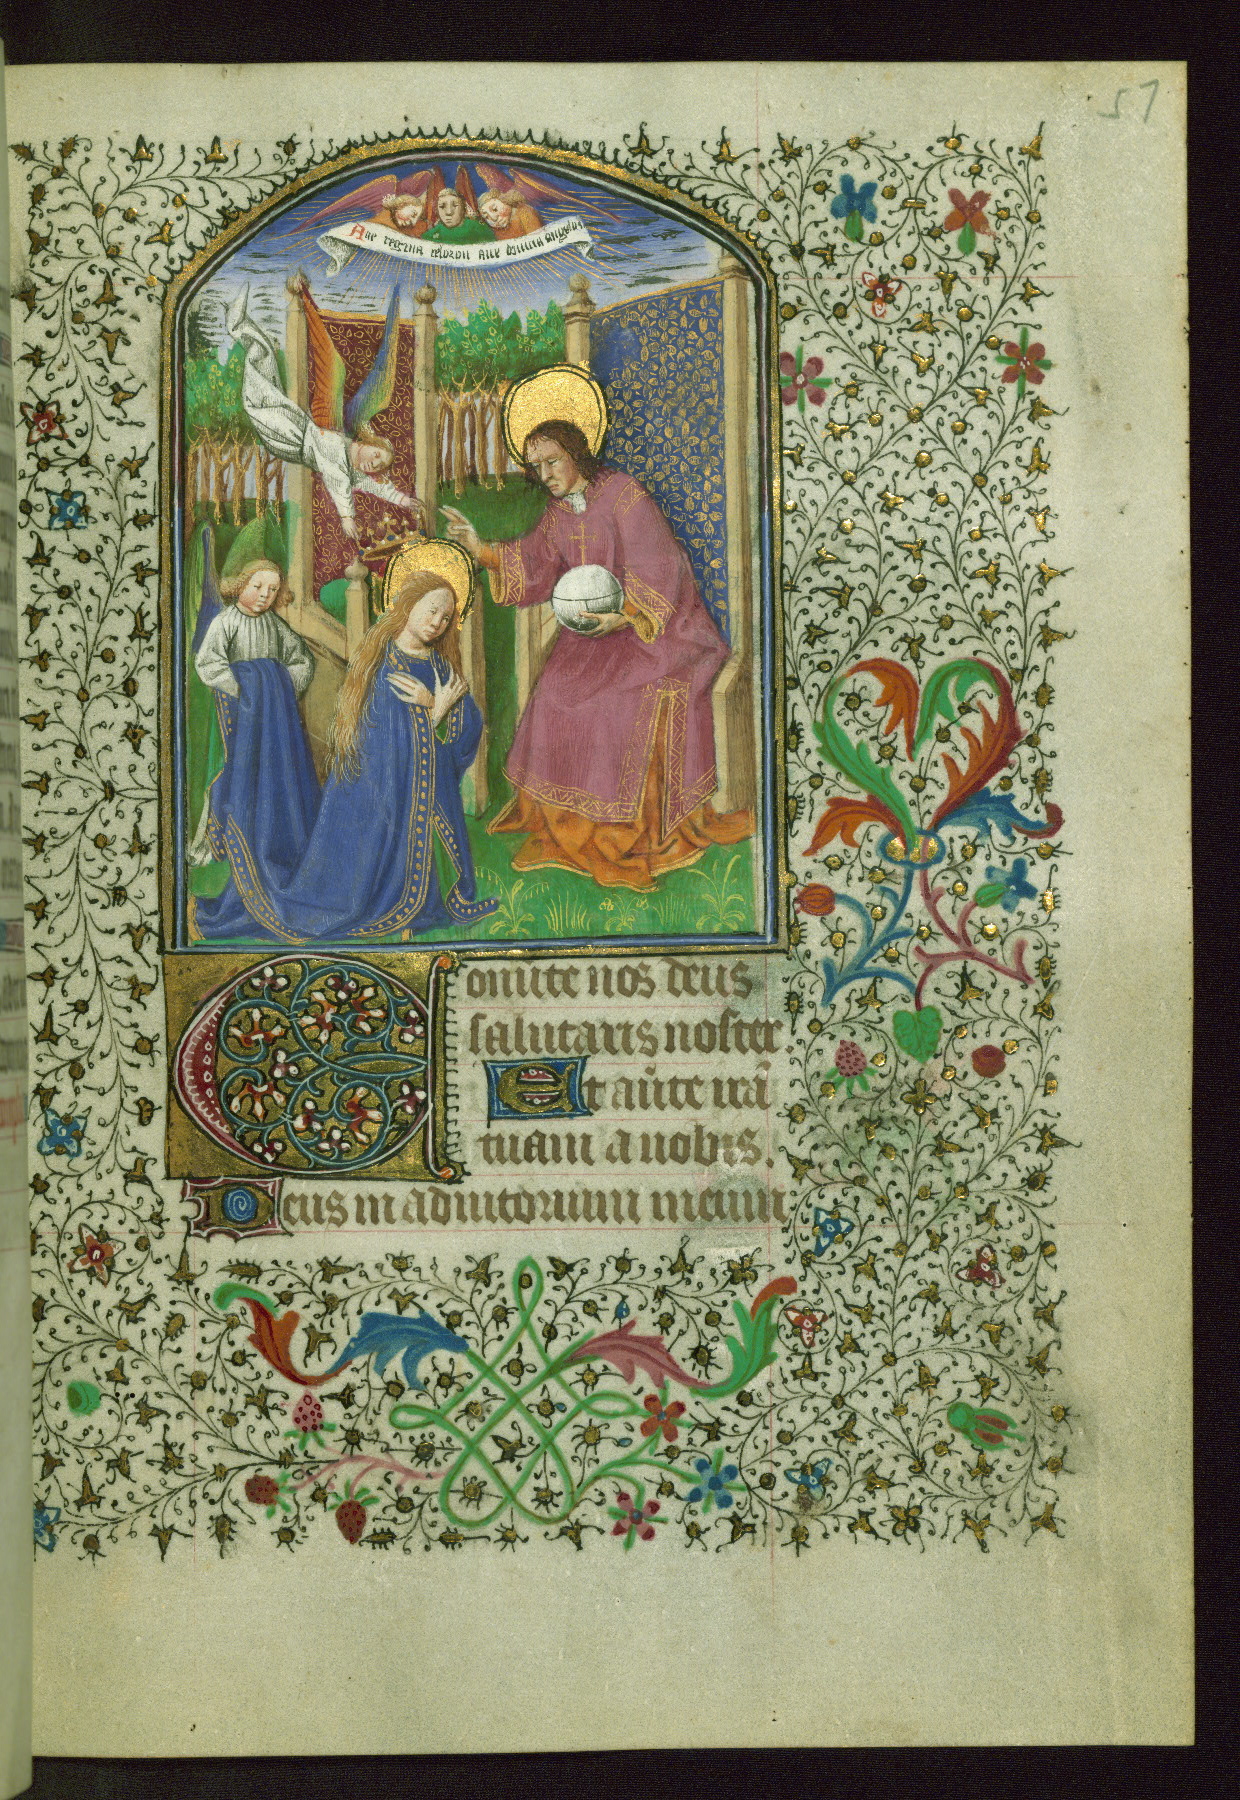 51
Ave regina celorum ave domina angelor
Conuite nos deus
salutaris noster.
Et auꝰte irā
tuam a nobis.
Deus in adiutorium meum